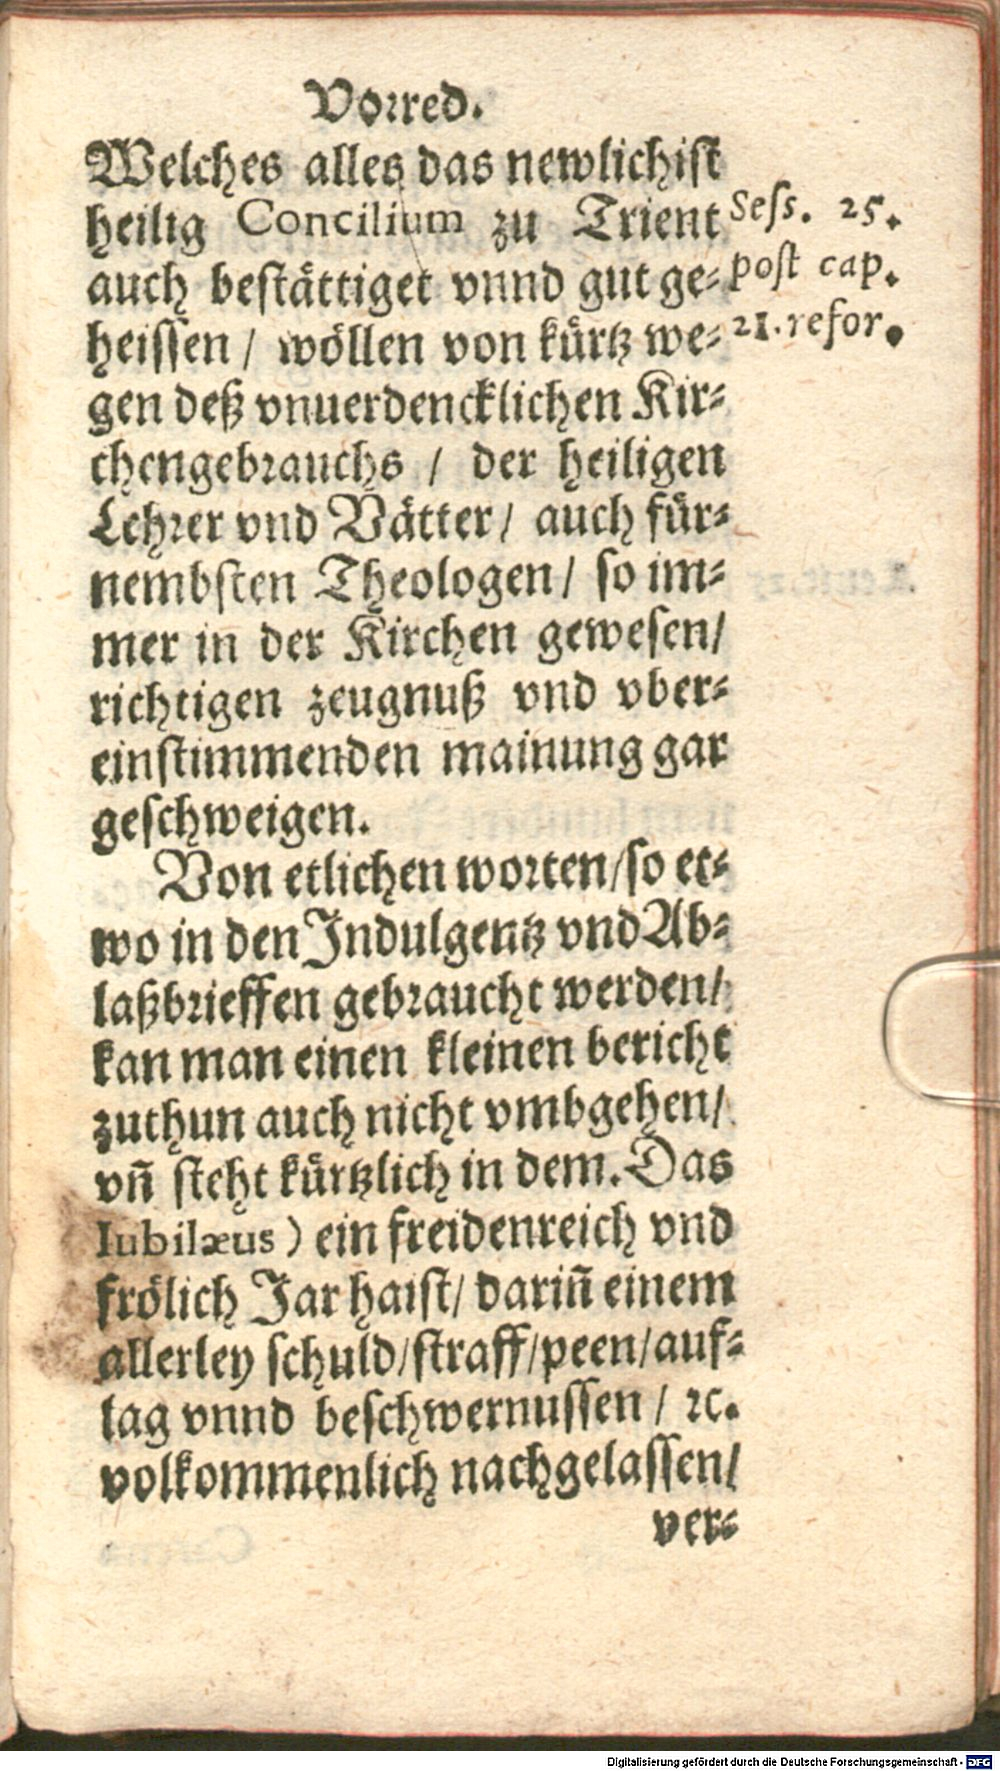 Vorred.
Welches alles das newlichist
heilig Concilium zu Trient
auch bestättiget vnnd gut ge⸗
heissen / wöllen von kürtz we⸗
gen deß vnuerdencklichen Kir⸗
chengebrauchs / der heiligen
Lehrer vnd Vätter / auch für⸗
nembsten Theologen / so im⸗
mer in der Kirchen gewesen /
richtigen zeugnuß vnd vber⸗
einstimmenden mainung gar
geschweigen.
Von etlichen worten / so et⸗
wo in den Indulgentz vnd Ab⸗
laßbrieffen gebraucht werden /
kan man einen kleinen bericht
zuthun auch nicht vmbgehen /
vn̄ steht kürtzlich in dem. Das
Iubilæus ) ein freidenreich vnd
frölich Jar haist / darin̄ einem
allerley schuld / straff / peen / auf⸗
lag vnnd beschwernussen / ꝛc.
volkommenlich nachgelassen /
ver⸗
Sess. 25.
post cap.
21. refor.
Digitalisierung gefördert durch die Deutsche Forschungsgemeinschaft - DFG